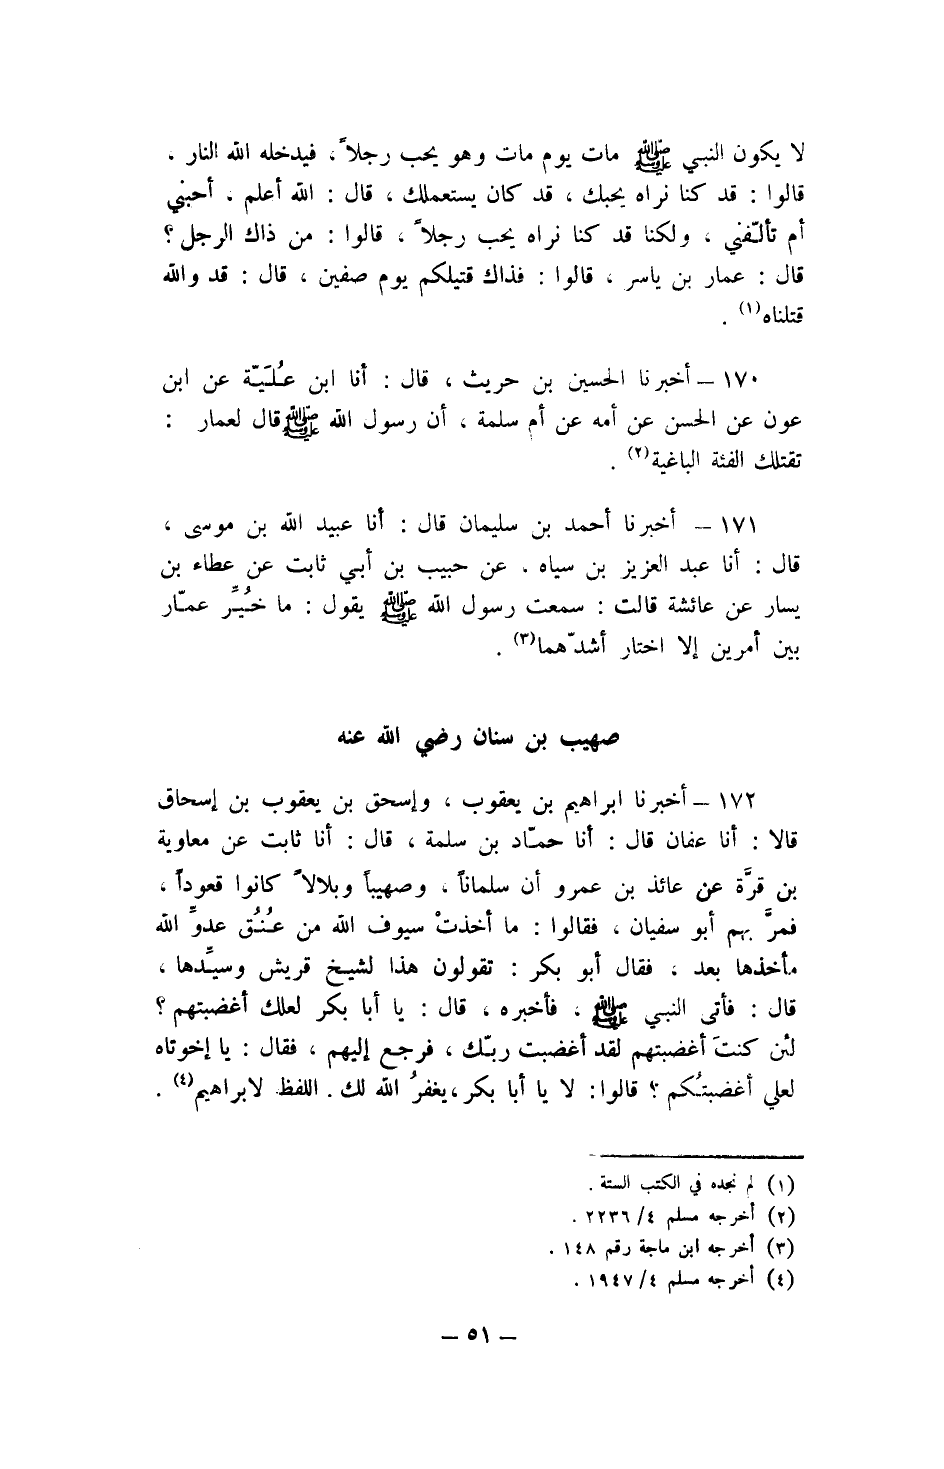 لا يكون النبي ﷺ مات يوم مات وهو يحب رجلاً، فيدخله الله النار .
قالوا : قد كنا نراه يحبك ، قد كان يستعملك ، قال : الله أعلم . أحبني
أم تألّفني ، ولكنا قد كنا نراه يحب رجلاً ، قالوا : من ذاك الرجل ؟
قال : عمار بن ياسر ، قالوا : فذاك قتيلكم يوم صفين ، قال : قد والله
قتلناه(١) .
١٧٠ – أخبرنا الحسين بن حريث ، قال : أنا ابن عُلَيّة عن ابن
عون عن الحسن عن أمه عن أم سلمة ، أن رسول الله ﷺ قال لعمار :
تقتلك الفئة الباغية(٢) .
١٧١ – أخبرنا أحمد بن سليمان قال : أنا عبيد الله بن موسى ،
قال : أنا عبد العزيز بن سياه . عن حبيب بن أبي ثابت عن عطاء بن
يسار عن عائشة قالت : سمعت رسول الله ﷺ يقول : ما خُيِّر عمّار
بين أمرين إلا اختار أشدّهما(٣) .
صهيب بن سنان رضي الله عنه
١٧٢ – أخبرنا ابراهيم بن يعقوب ، وإسحق بن يعقوب بن إسحاق
قالا : أنا عفان قال : أنا حمّاد بن سلمة ، قال : أنا ثابت عن معاوية
بن قرَّة عن عائذ بن عمرو أن سلماناً ، وصهيباً وبلالاً كانوا قعوداً ،
فمرَّ بهم أبو سفيان ، فقالوا : ما أخذتْ سيوف الله من عُنُق عدوِّ الله
مأخذها بعد ، فقال أبو بكر : تقولون هذا لشيخ قريش وسيِّدها ،
قال : فأتى النبي ﷺ ، فأخبره ، قال : يا أبا بكر لعلك أغضبتهم ؟
لئن كنتَ أغضبتهم لقد أغضبت ربّك ، فرجع إليهم ، فقال : يا إخوتاه
لعلي أغضبتُكم ؟ قالوا : لا يا أبا بكر ، يغفرُ الله لك . اللفظ لابراهيم(٤) .
(١) لم نجده في الكتب الستة .
(٢) أخرجه مسلم ٤/ ٢٢٣٦ .
(٣) أخرجه ابن ماجة رقم ١٤٨ .
(٤) أخرجه مسلم ٤/ ١٩٤٧ .
– ٥١ –